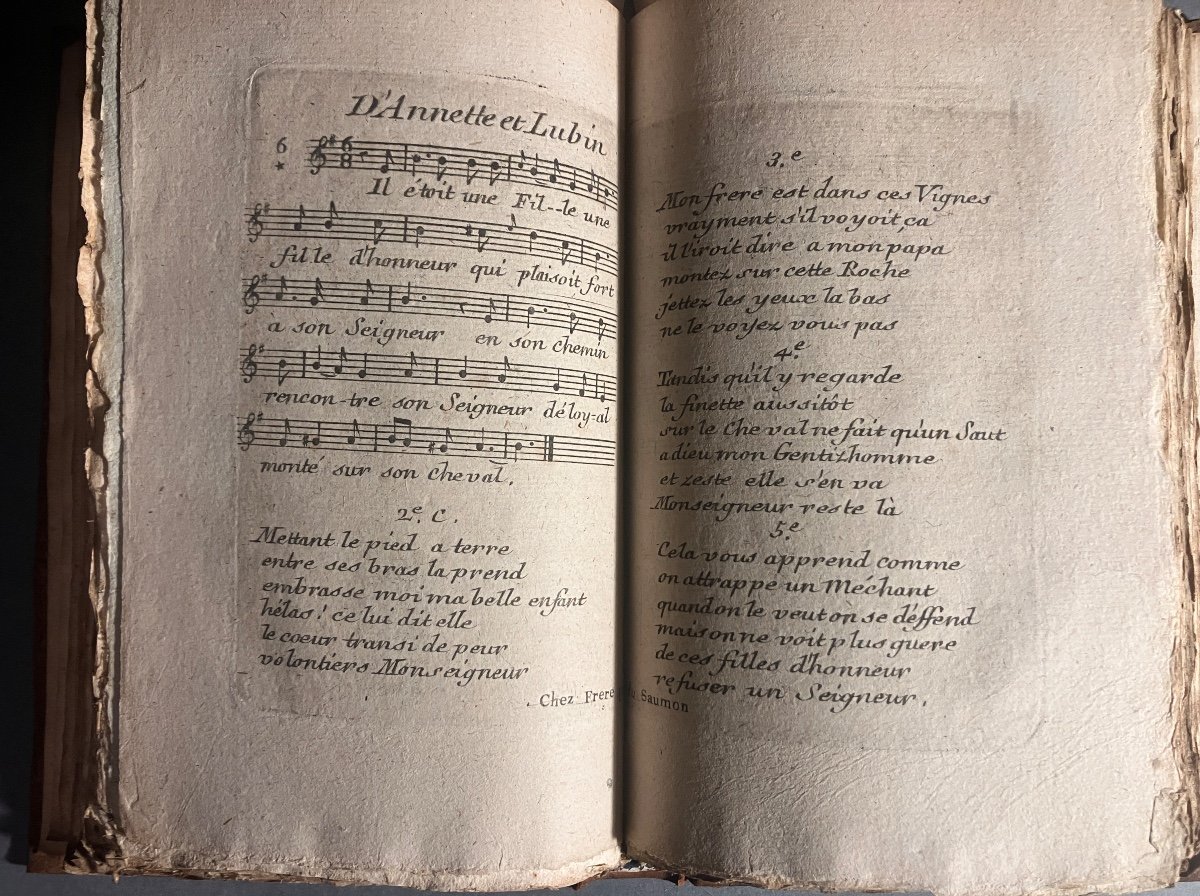 D'Annette et Lubin
6
6
8
*
Il étoit une Fil--le une
fille d'honneur qui plaisoit fort
à son Seigneur en son chemin
rencon-tre son Seigneur déloy-al
monté sur son cheval.
2.e C.
Mettant le pied a terre
entre ses bras la prend
embrasse moi ma belle enfant
hélas! ce lui dit elle
le coeur transi de peur
volontiers Monseigneur
. Chez Frere Saumon
3.e
Mon frere est dans ces Vignes
vrayment s'il voyoit ça
il l'iroit dire a mon papa
montez sur cette Roche
jettez les yeux la bas
ne le voyez vous pas
4.e
Tandis qu'il y regarde
la finette aussitôt
sur le Cheval ne fait qu'un Saut
adieu mon Gentizhomme
et zeste elle s'en va
Monseigneur reste là
5.e
Cela vous apprend comme
on attrappe un Méchant
quand on le veut on se déffend
mais on ne voit plus guere
de ces filles d'honneur
refuser un Seigneur.